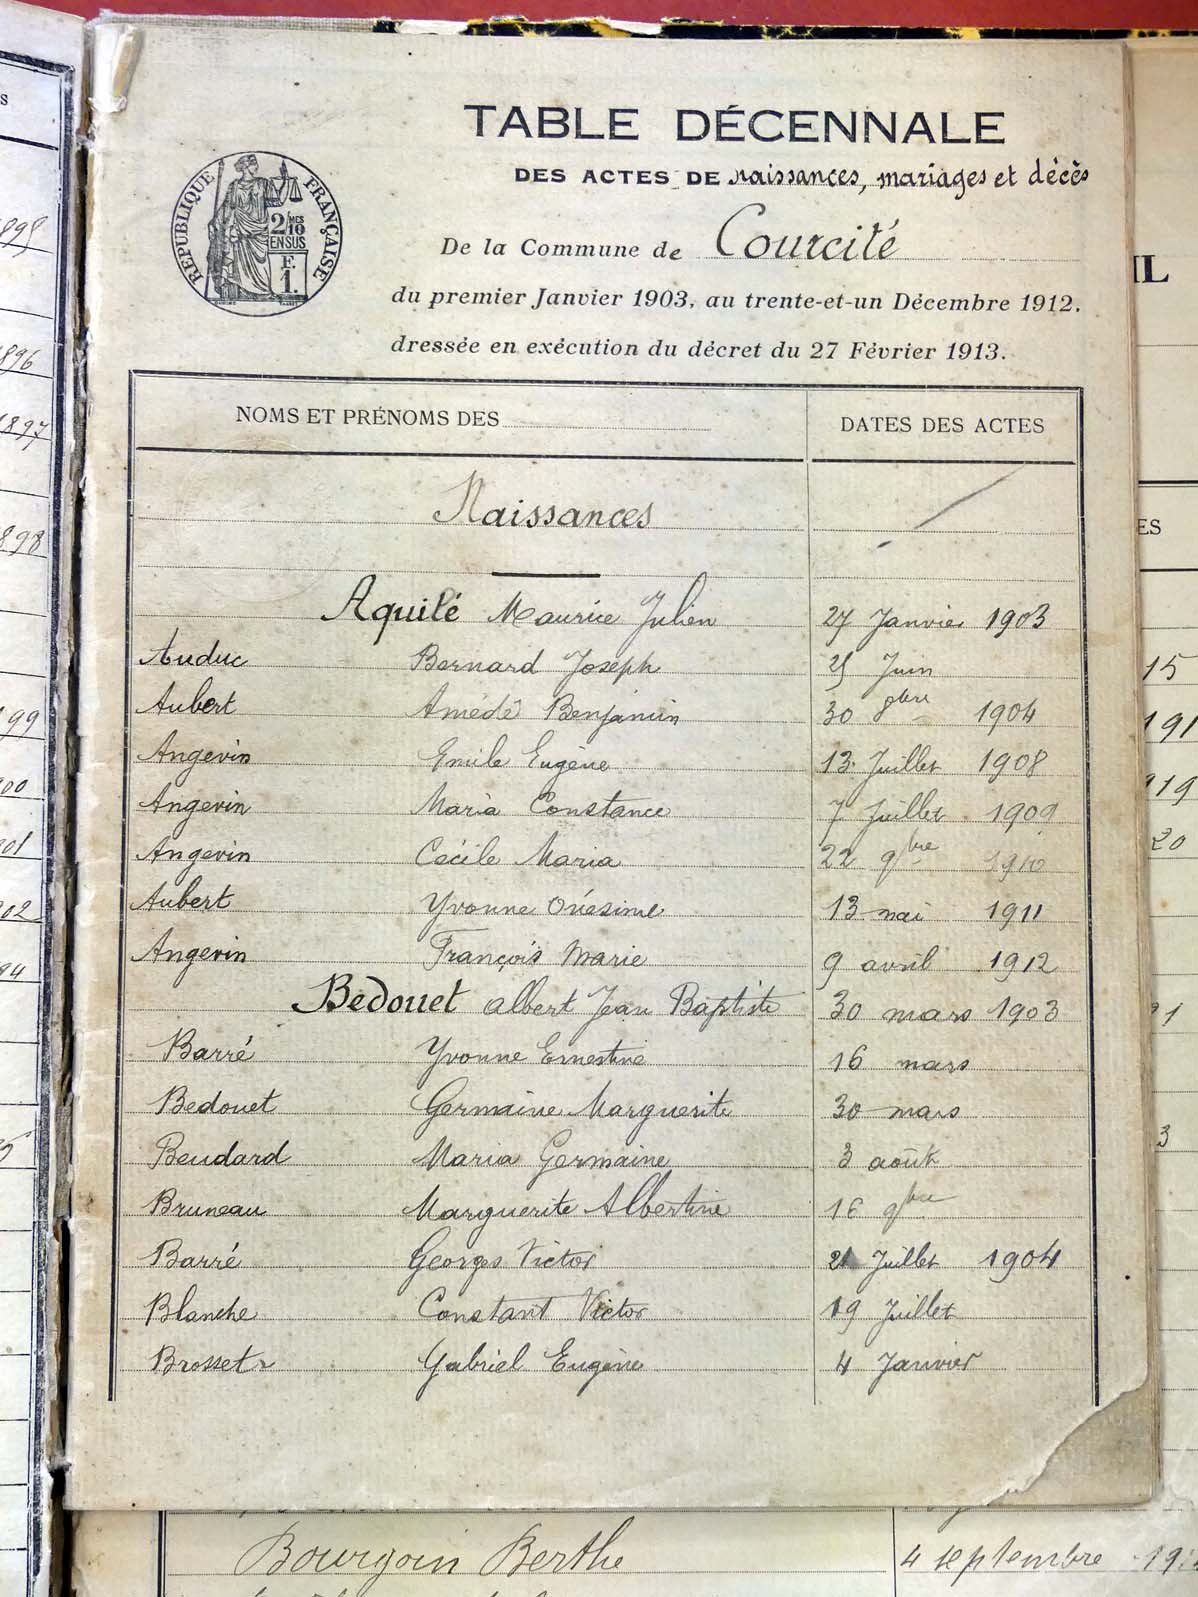 TABLE DÉCENNALE
DES ACTES DE naissances, mariages et décès
RÉPUBLIQUE FRANÇAISE
2/10 MES
EN SUS
F.
1.
De la Commune de Courcité
du premier Janvier 1903, au trente-et-un Décembre 1912.
dressée en exécution du décret du 27 Février 1913.
NOMS ET PRÉNOMS DES DATES DES ACTES
Naissances
Aquilé Maurice Julien 27 Janvier 1903
Auduc Bernard Joseph 25 Juin
Aubert Amédé Benjamin 30 8bre 1904
Angevin Emile Eugène 13 Juillet 1908
Angevin Maria Constance 7 Juillet 1909
Angevin Cécile Maria 22 9bre 1910
Aubert Yvonne Onésime 13 mai 1911
Angevin François Marie 9 avril 1912
Bedouet Albert Jean Baptiste 30 mars 1903
Barré Yvonne Ernestine 16 mars
Bedouet Germaine Marguerite 30 mars
Beudard Maria Germaine 3 août
Bruneau Marguerite Albertine 16 9bre
Barré Georges Victor 21 Juillet 1904
Blanche Constant Victor 19 Juillet
Brosset Gabriel Eugène 4 Janvier
Bourgoin Berthe 4 septembre
896
1897
898
99
00
01
02
94
IL
ES
15
191
119
20